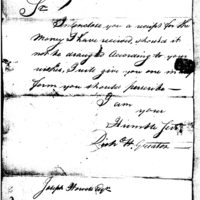 Sir
I enclose you a receipt for the
Money I have received, should it
not be draught According to your
wishes, I will give you one in any
form you should prescribe —
I am
your
Humble Servt
Joseph Howard Esqr